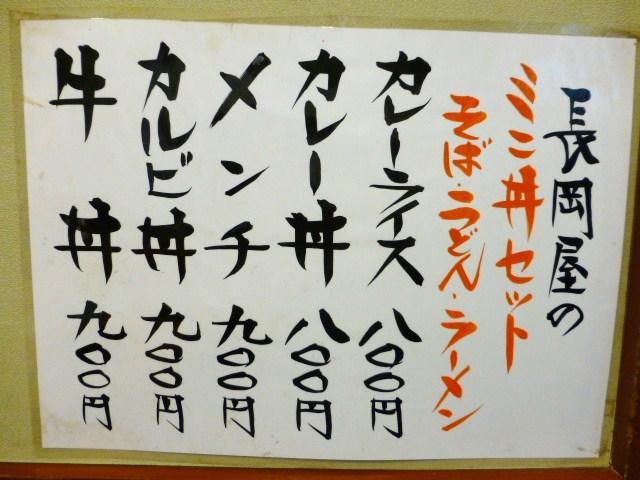 長岡屋の
ミニ丼セット
そば・うどん・ラーメン
カレーライス 八〇〇円
カレー丼 八〇〇円
メンチ 九〇〇円
カルビ丼 九〇〇円
牛丼 九〇〇円